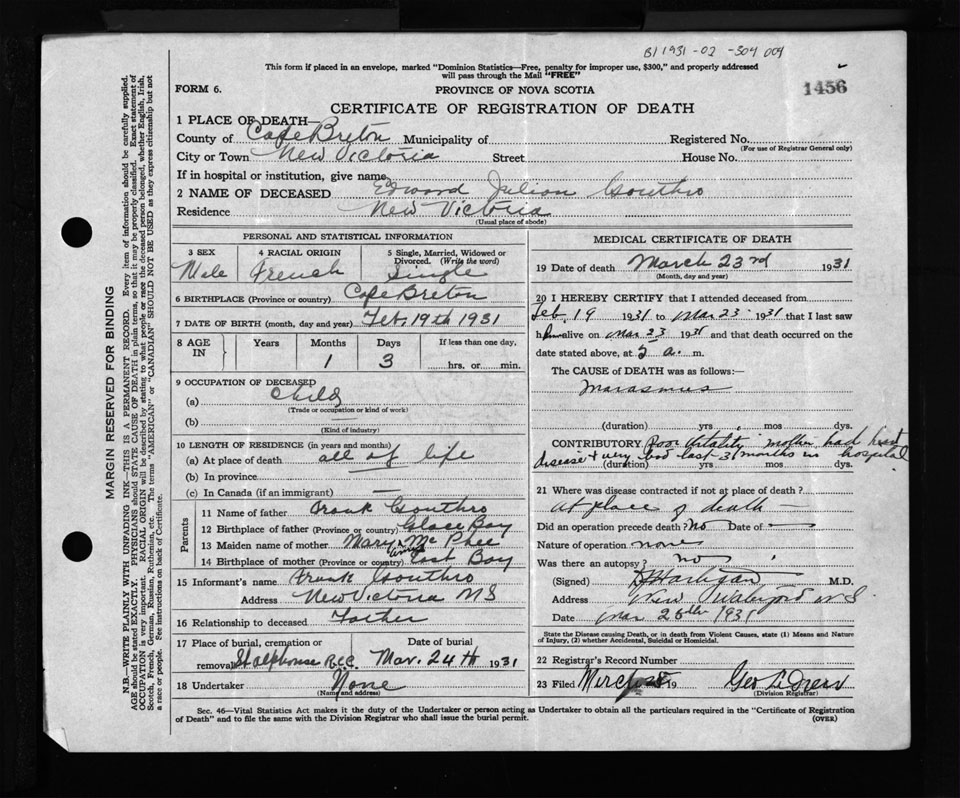 B1 1931-02-304 004
1456
This form if placed in an envelope, marked "Dominion Statistics—Free, penalty for improper use, $300," and properly addressed
will pass through the Mail "FREE"
FORM 6. PROVINCE OF NOVA SCOTIA
CERTIFICATE OF REGISTRATION OF DEATH
1 PLACE OF DEATH—
County of Cape Breton Municipality of Registered No.
(For use of Registrar General only)
City or Town New Victoria Street House No.
If in hospital or institution, give name
2 NAME OF DECEASED Edward Julian Gouthro
Residence New Victoria
(Usual place of abode)
PERSONAL AND STATISTICAL INFORMATION
3 SEX 4 RACIAL ORIGIN 5 Single, Married, Widowed or Divorced. (Write the word)
Male French Single
6 BIRTHPLACE (Province or country) Cape Breton
7 DATE OF BIRTH (month, day and year) Feb 19th 1931
8 AGE IN Years Months Days If less than one day,
1 3 hrs. or min.
9 OCCUPATION OF DECEASED
(a) Child
(Trade or occupation or kind of work)
(b)
(Kind of industry)
10 LENGTH OF RESIDENCE (in years and months)
(a) At place of death all of life
(b) In province
(c) In Canada (if an immigrant) —
Parents
11 Name of father Frank Gouthro
12 Birthplace of father (Province or country) Glace Bay
13 Maiden name of mother Mary Ann McPhee
14 Birthplace of mother (Province or country) East Bay
15 Informant's name Frank Gouthro
Address New Victoria N S
16 Relationship to deceased Father
17 Place of burial, cremation or removal Date of burial
St Alphonse R.C.C. Mar. 24th 1931
18 Undertaker None
(Name and address)
MEDICAL CERTIFICATE OF DEATH
19 Date of death March 23rd 1931
(Month, day and year)
20 I HEREBY CERTIFY that I attended deceased from
Feb 19 1931 to Mar 23 1931 that I last saw
h alive on Mar 23 1931 and that death occurred on the
date stated above, at 5 a. m.
The CAUSE of DEATH was as follows:
Marasmus
(duration) yrs mos. dys.
CONTRIBUTORY Poor Vitality mother had heart
disease & very last 3 months in hospital
(duration) yrs. mos. dys.
21 Where was disease contracted if not at place of death?
At place of death —
Did an operation precede death? No Date of —
Nature of operation none
Was there an autopsy? no
(Signed) Hartigan M.D.
Address New Waterford N S
Date Mar 26th 1931
State the Disease causing Death, or in death from Violent Causes, state (1) Means and Nature
of Injury, (2) whether Accidental, Suicidal or Homicidal.
22 Registrar's Record Number
23 Filed 19 Geo
(Division Registrar)
Sec. 46—Vital Statistics Act makes it the duty of the Undertaker or person acting as Undertaker to obtain all the particulars required in the "Certificate of Registration
of Death" and to file the same with the Division Registrar who shall issue the burial permit. (OVER)
MARGIN RESERVED FOR BINDING
N.B.—WRITE PLAINLY WITH UNFADING INK—THIS IS A PERMANENT RECORD. Every item of information should be carefully supplied.
AGE should be stated EXACTLY. PHYSICIANS should STATE CAUSE OF DEATH in plain terms, so that it may be properly classified. Exact statement of
OCCUPATION is very important. RACIAL ORIGIN will be described by stating to what people or race the deceased person belonged, whether English, Irish,
Scotch, French, German, Russian, Ruthenian, etc. The terms "AMERICAN" or "CANADIAN" SHOULD NOT BE USED as they express citizenship but not
a race or people. See instructions on back of Certificate.